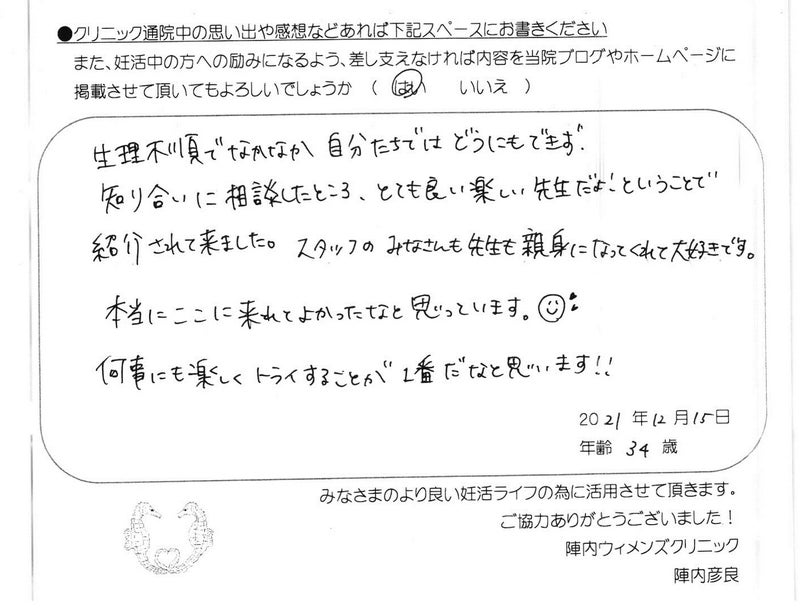 ●クリニック通院中の思い出や感想などあれば下記スペースにお書きください
また、妊活中の方への励みになるよう、差し支えなければ内容を当院ブログやホームページに
掲載させて頂いてもよろしいでしょうか （ はい いいえ ）
生理不順でなかなか自分たちではどうにもできず、
知り合いに相談したところ、とても良い楽しい先生だよ！ということで
紹介されて来ました。スタッフのみなさんも先生も親身になってくれて大好きです。
本当にここに来れてよかったなと思っています。
何事にも楽しくトライすることが1番だなと思います!!
2021 年 12 月 15日
年齢 34 歳
みなさまのより良い妊活ライフの為に活用させて頂きます。
ご協力ありがとうございました！
陣内ウィメンズクリニック
陣内彦良